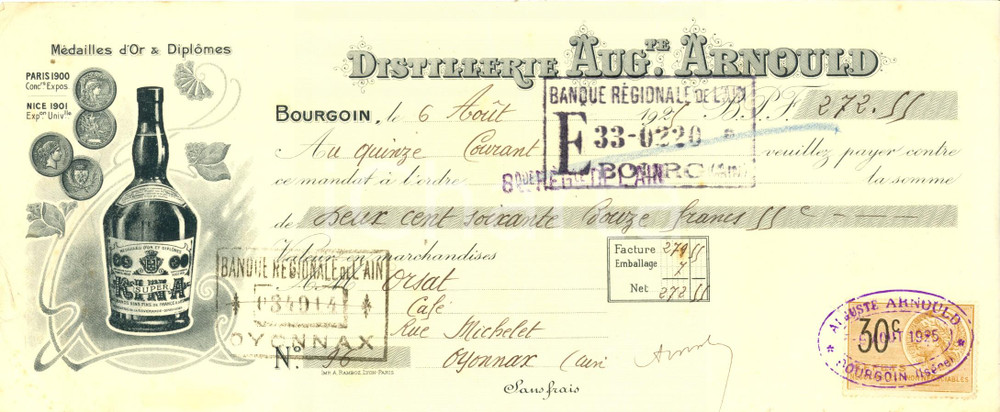 Médailles d'Or & Diplômes
PARIS 1900
Concrs Expos.
NICE 1901
Expon Univlle
DISTILLERIE AUGTE. ARNOULD
BOURGOIN, le 6 Août 1925 B.P.F. 272.55
BANQUE RÉGIONALE DE L'AIN
E 33-0220
BOURG (AIN)
Au quinze Courant veuillez payer contre
ce mandat à l'ordre la somme
de Deux cent soixante douze francs 55 c
Valeur en marchandises
Facture 279 55
Emballage 7
Net 272 55
BANQUE RÉGIONALE DE L'AIN
034914
OYONNAX
Orsat
Café
Rue Michelet
Oyonnax (Ain
No. 96
IMP. A. RAMBOZ, LYON-PARIS
Sans frais
SUPER
KINA
AUGUSTE ARNOULD
AOUT 1925
BOURGOIN (Isère)
30c